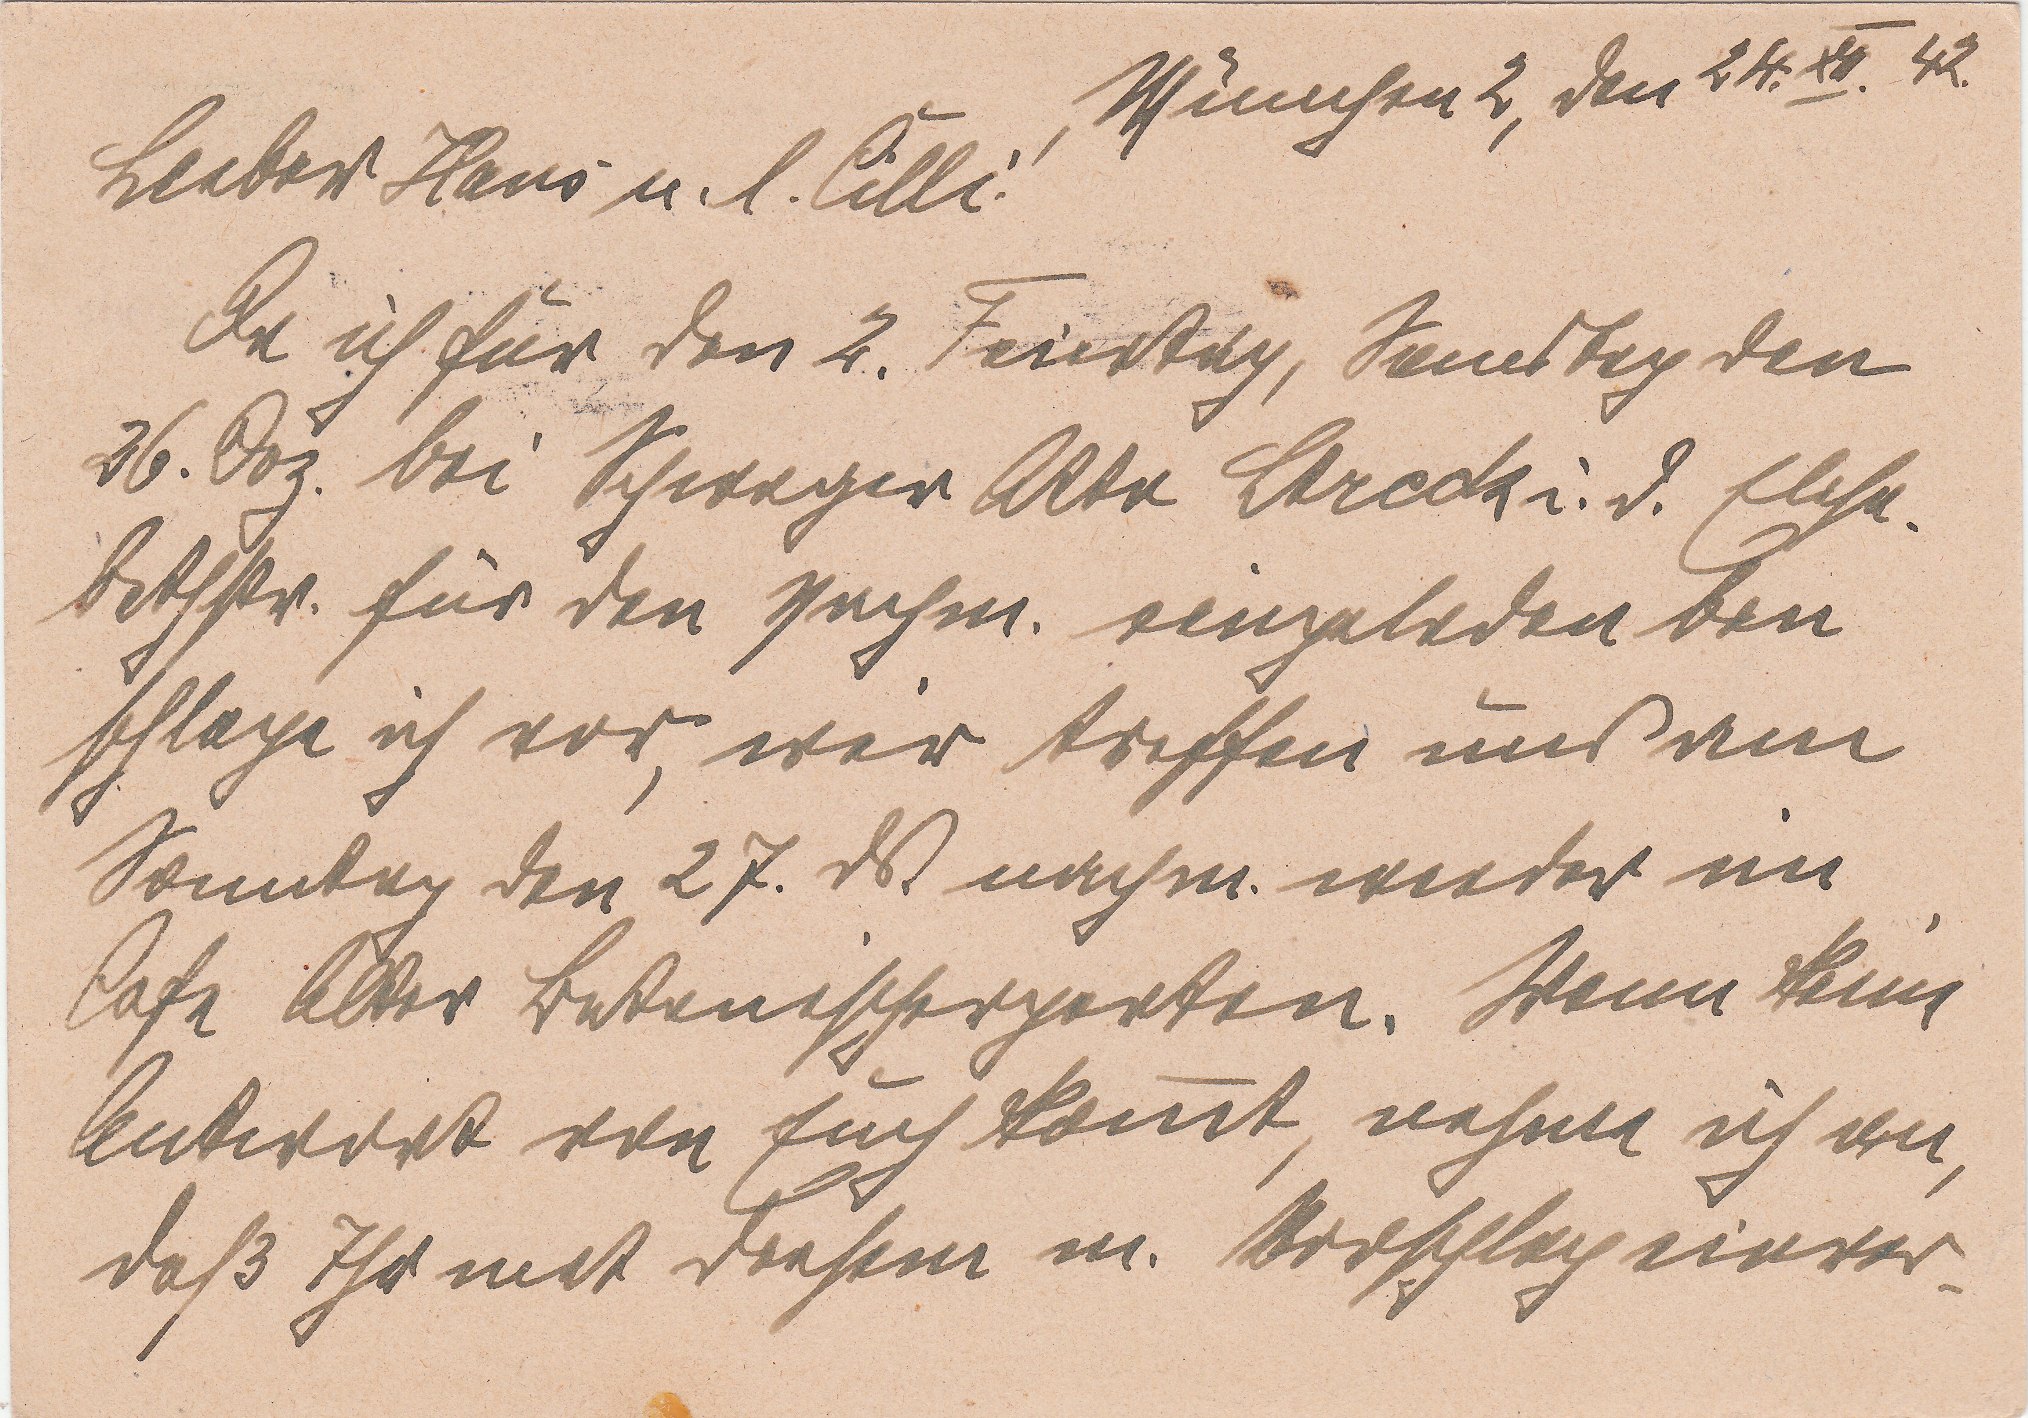 München 2, den 24. XII. 42.
Lieber Hans u. l. Cilli!
Da ich für den 2. Feiertag, Samstag den
26. Dez. bei Schwager Otto Streck i. d. Elisa-
bethstr. für den Nachm. eingeladen bin
schlage ich vor, wir treffen uns am
Sonntag den 27. ds. nachm. wieder im
Cafe Alter Botanischergarten. Wenn keine
Antwort von Euch kom̅t, nehme ich an,
daß Ihr mit diesem m. Vorschlag einver-